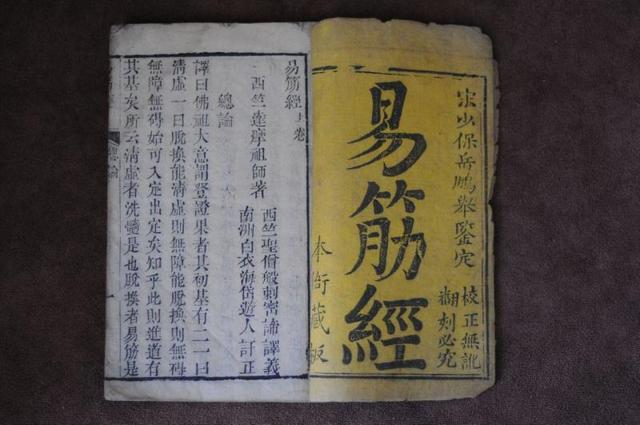 宋少保岳鵬舉鑒定
校正無訛
翻刻必究
易筋經
本衙藏板
易筋經上卷
西竺達摩祖師著
西竺聖僧般剌密諦譯義
南洲白衣海岱遊人訂正
總論
譯曰佛祖大意謂登證果者其初基有二一曰
清虛一曰脫換能清虛則無障能脫換則無礙
無障無碍始可入定出定矣知乎此則進道有
其基矣所云清虛者洗髓是也脫換者易筋是
總論
一